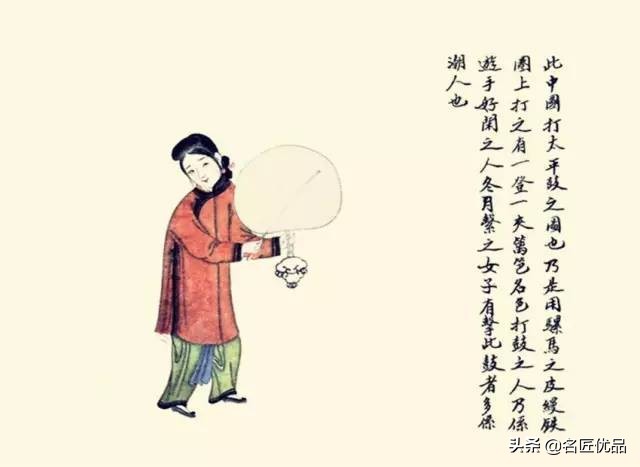 此中國打太平鼓之圖也乃是用騾馬之皮縵鉄
圈上打之有一登一夫萬笆名色打鼓之人乃係
遊手好閑之人冬月擊之女子有擊此鼓者多係
潮人也
头条 @名匠优品